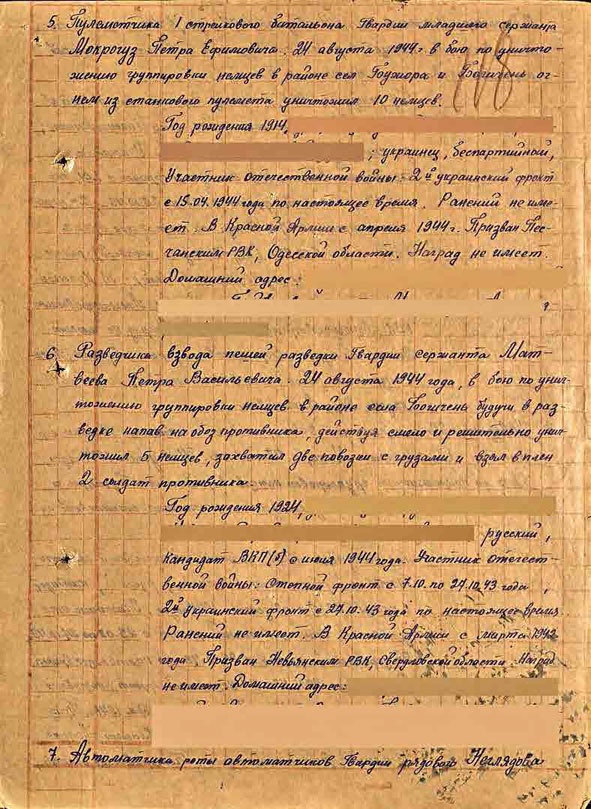 5. Пулеметчика 1 стрелкового батальона Гвардии младшего сержанта
Мокрогуз Петра Ефимовича. 24 августа 1944 г. в бою по уничто-
жению группировки немцев в районе сел и Богичень ог-
нем из станкового пулемета уничтожил 10 немцев.
Год рождения 1914,
, украинец, беспартийный,
Участник отечественной войны: 2й украинский фронт
с 15.04.1944 года по настоящее время. Ранений не име-
ет. В Красной Армии с апреля 1944 г. Призван Пес-
чанским РВК, Одесской области. Наград не имеет.
Домашний адрес:
6. Разведчика взвода пешей разведки Гвардии сержанта Мат-
веева Петра Васильевича. 24 августа 1944 года, в бою по унич-
тожению группировки немцев в районе села Богичень будучи в раз-
ведке напав на обоз противника, действуя смело и решительно унич-
тожил 5 немцев, захватил две повозки с грузами и взял в плен
2 солдат противника.
Год рождения 1924,
русский,
Кандидат ВКП(б) с июля 1944 года. Участник отечест-
венной войны: Степной фронт с 7.10. по 27.10.43 года,
2й украинский фронт с 27.10.43 года по настоящее время
Ранений не имеет. В Красной Армии с марта
года Призван Невьянским РВК, Свердловской области. Наград
не имеет. Домашний адрес:
7. Автоматчика роты автоматчиков Гвардии рядового Неглядова